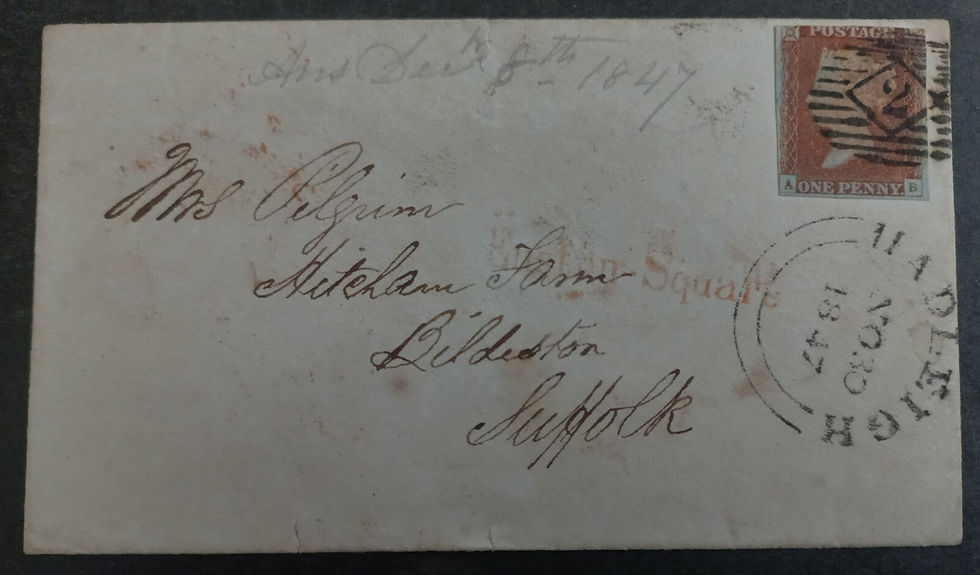 Ans Decr 8th 1847
POSTAGE
2
A ONE PENNY B
Mrs Pilgrim
Hitcham Farm
Bildeston
Suffolk
Square
HADLEIGH
NO 30
1847